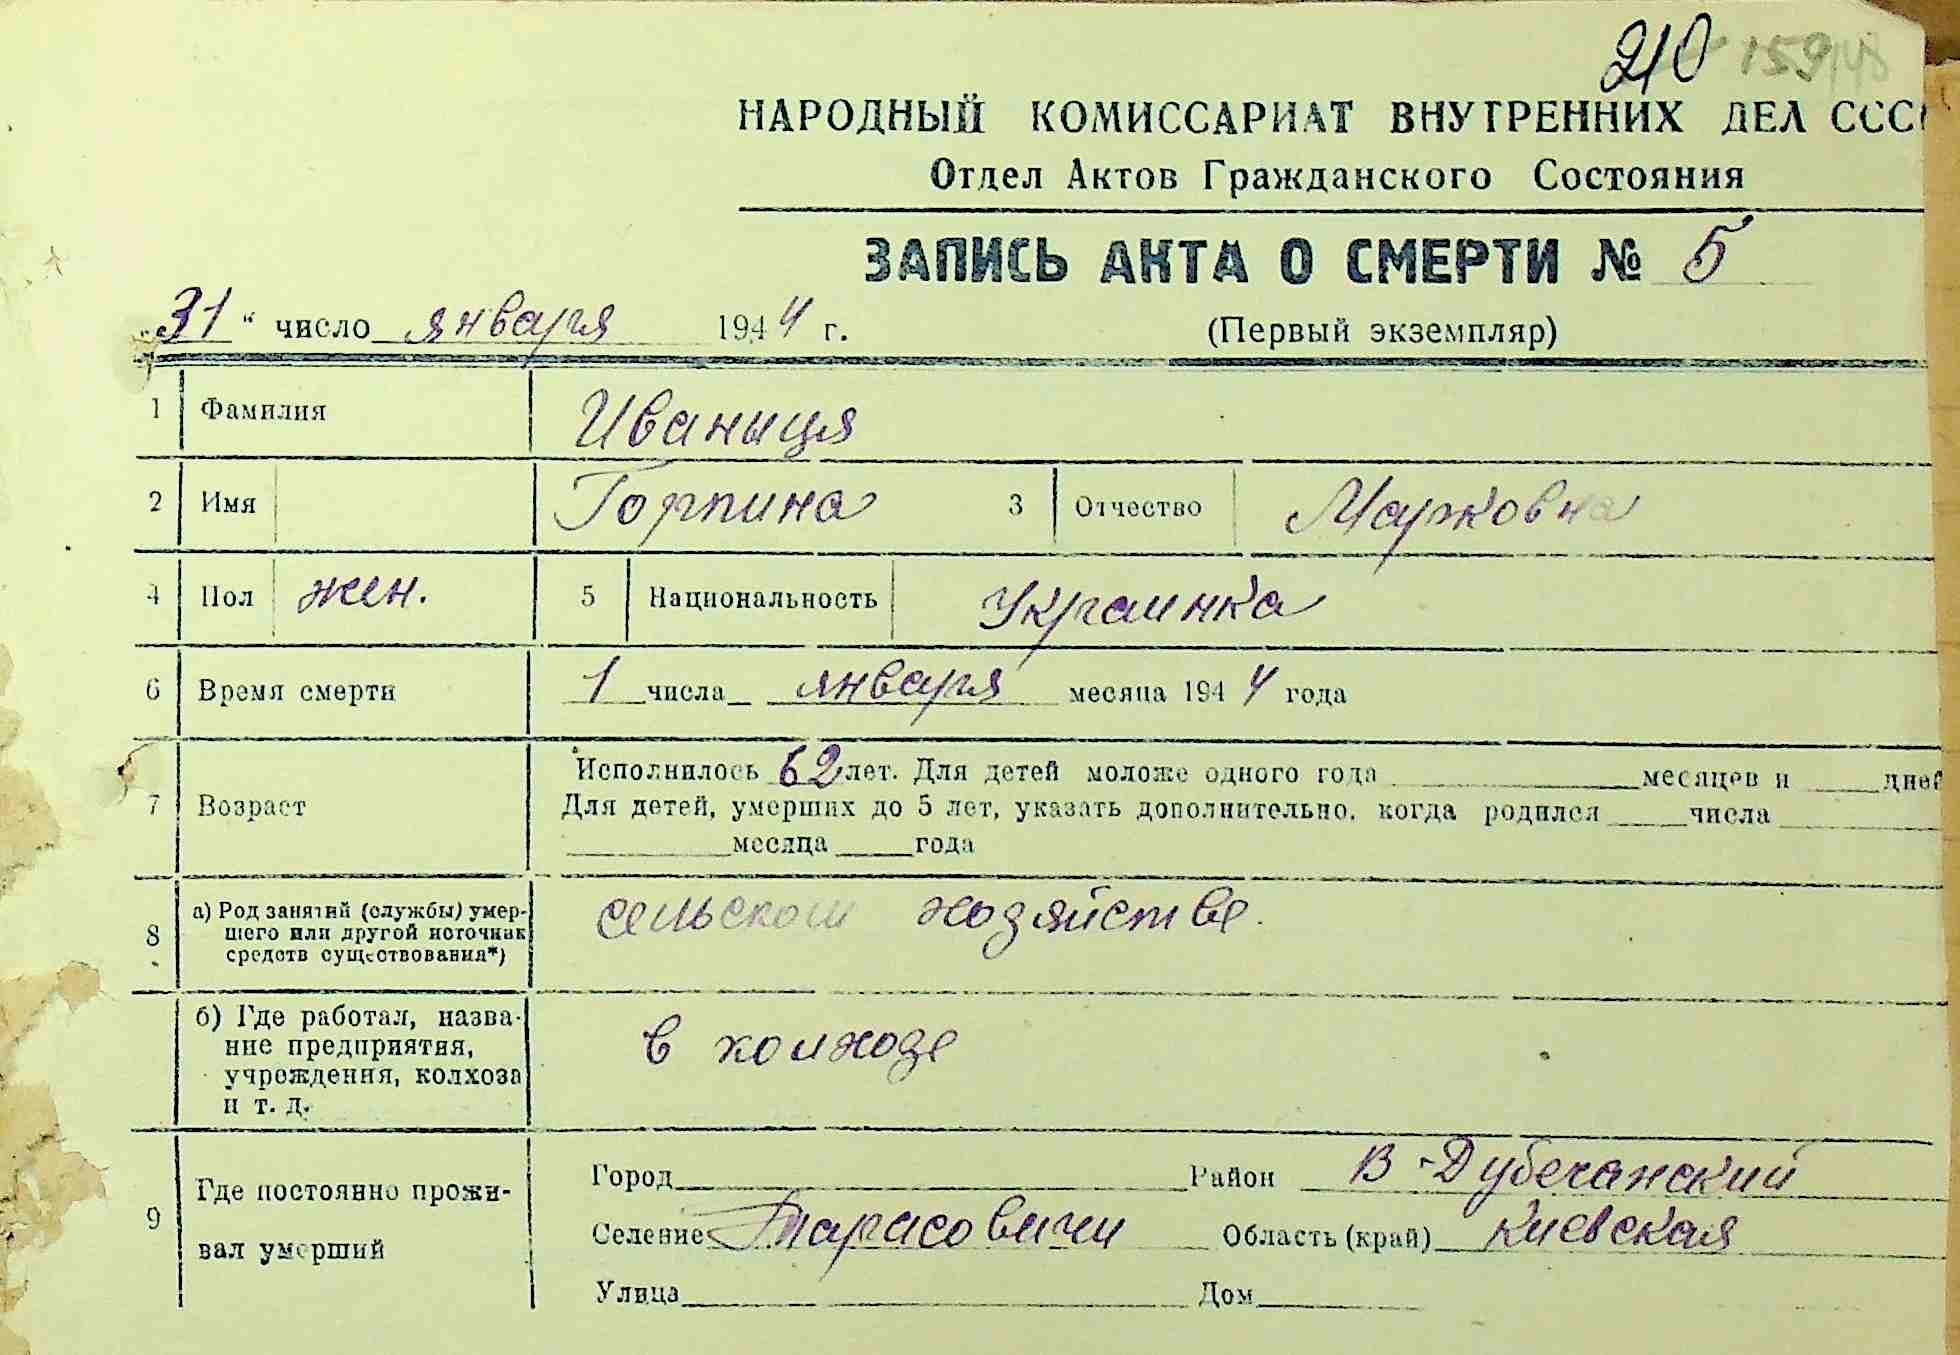 210 159/48
НАРОДНЫЙ КОМИССАРИАТ ВНУТРЕННИХ ДЕЛ ССС
Отдел Актов Гражданского Состояния
ЗАПИСЬ АКТА О СМЕРТИ № 5
„31“ число января 1944 г. (Первый экземпляр)
1 Фамилия Иваныця
2 Имя Горпина 3 Отчество Марковна
4 Пол жен. 5 Национальность Украинка
6 Время смерти 1 числа января месяца 1944 года
Исполнилось 62 лет. Для детей моложе одного года месяцев и дней
7 Возраст Для детей, умерших до 5 лет, указать дополнительно, когда родился числа
месяца года
8 а) Род занятий (службы) умер-
шего или другой источник
средств существования*) сельском хозяйстве.
б) Где работал, назва-
ние предприятия,
учреждения, колхоза
и т. д. в колхозе
9 Где постоянно прожи-
вал умерший
Город Район В-Дубечанский
Селение Тарасовичи Область (край) Киевская
Улица Дом